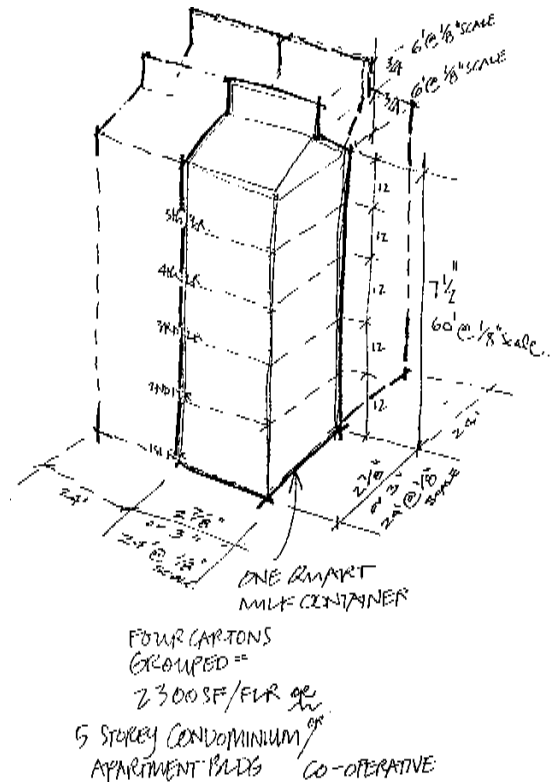 6' @ 1/8" SCALE
3/4
6' @ 1/8" SCALE
3/4
12
12
12
12
12
5th FLR
4th FLR
3RD FLR
2ND FLR
1st FLR
7 1/2"
60' @ 1/8" scale
24'
24'
2 7/8"
or 3"
24' @ 1/8"
SCALE
2 7/8"
or 3"
24' @ 1/8"
SCALE
ONE QUART
MILK CONTAINER
FOUR CARTONS
GROUPED =
2300 SF/FLR or
5 STOREY CONDOMINIUM/
or
APARTMENT BLDG CO-OPERATIVE